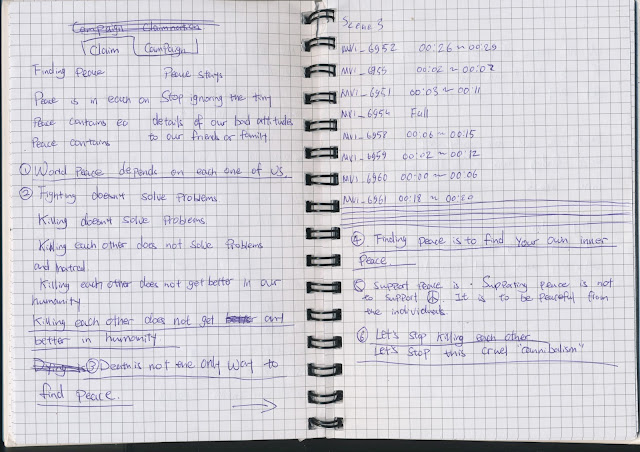 Claim Campaign
Finding Peace
Peace stays
Peace is in each on
Peace contains eo
Peace contains
Stop ignoring the tiny
details of our bad attitudes
to our friends or family
① World Peace depends on each one of us.
② Fighting doesn't solve Problems
Killing doesn't solve Problems
Killing each other does not solve Problems
and hatred.
Killing each other does not get better in our
humanity
Killing each other does not get better
better in humanity
③ Death is not the only way to
find peace.
Scene 3
MVI_6952 00:26~00:29
MVI_6955 00:02~00:07
MVI_6951 00:03~00:11
MVI_6954 Full
MVI_6958 00:06~00:15
MVI_6959 00:02~00:12
MVI_6960 00:00~00:06
MVI_6961 00:18~00:20
④ Finding peace is to find your own inner
Peace.
⑤ Support Peace is . Supporting peace is not
to support ☮. It is to be peaceful from
the individuals
⑥ Let's stop killing each other
Let's stop this cruel "cannibalism"